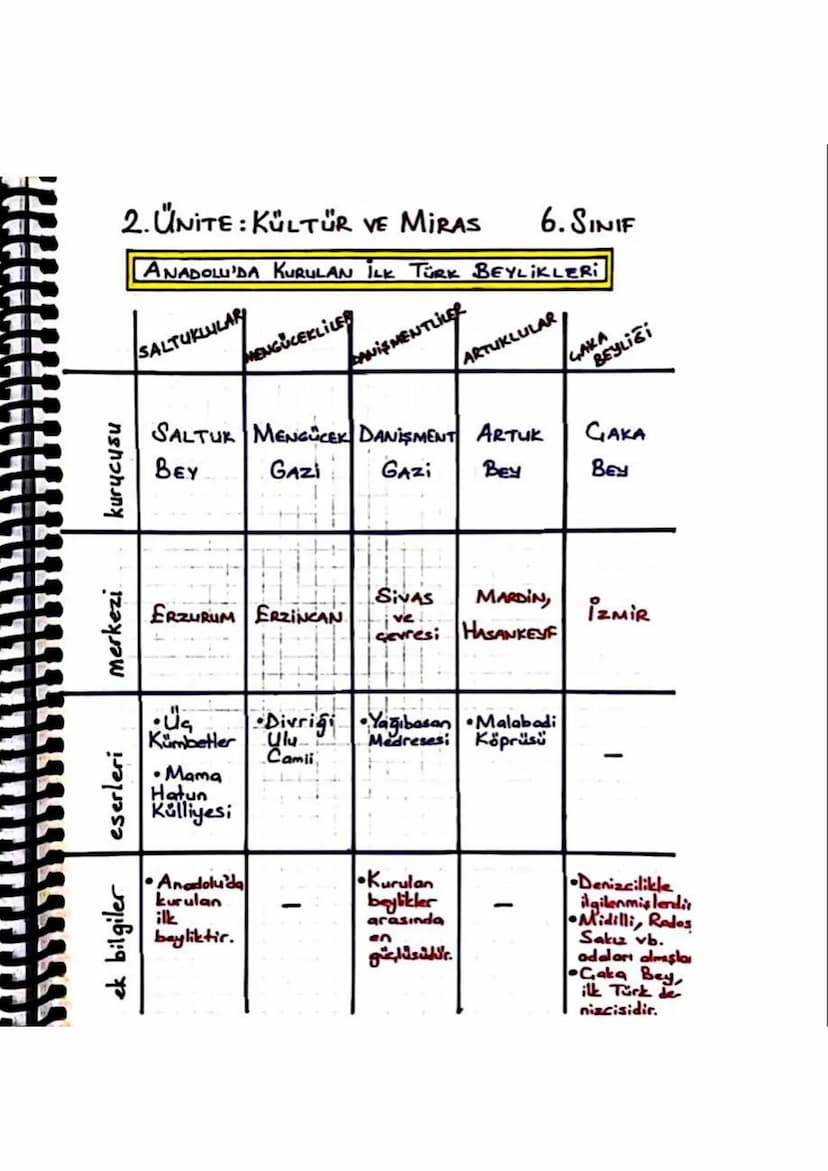 2. ÜNİTE: KÜLTÜR VE MİRAS 6. SINIF
ANADOLU'DA KURULAN İLK TÜRK BEYLİKLERİ
SALTUKLULAR MENGÜCEKLİLER DANİŞMENTLİLER ARTUKLULAR ÇAKA BEYLİĞİ
kurucusu
SALTUK BEY
MENGÜCEK GAZİ
DANİŞMENT GAZİ
ARTUK BEY
ÇAKA BEY
merkezi
ERZURUM
ERZİNCAN
SİVAS
ve
çevresi
MARDİN,
HASANKEYF
İZMİR
eserleri
• Üç
Kümbetler
• Mama
Hatun
Külliyesi
• Divriği
Ulu
Camii
• Yağıbasan
Medresesi
• Malabadi
Köprüsü
–
ek bilgiler
• Anadolu'da
kurulan
ilk
beyliktir.
–
• Kurulan
beylikler
arasında
en
güçlüsüdür.
–
• Denizcilikle
ilgilenmişlerdir
• Midilli, Rados,
Sakız vb.
adaları almışla
• Çaka Bey,
ilk Türk de-
nizcisidir.